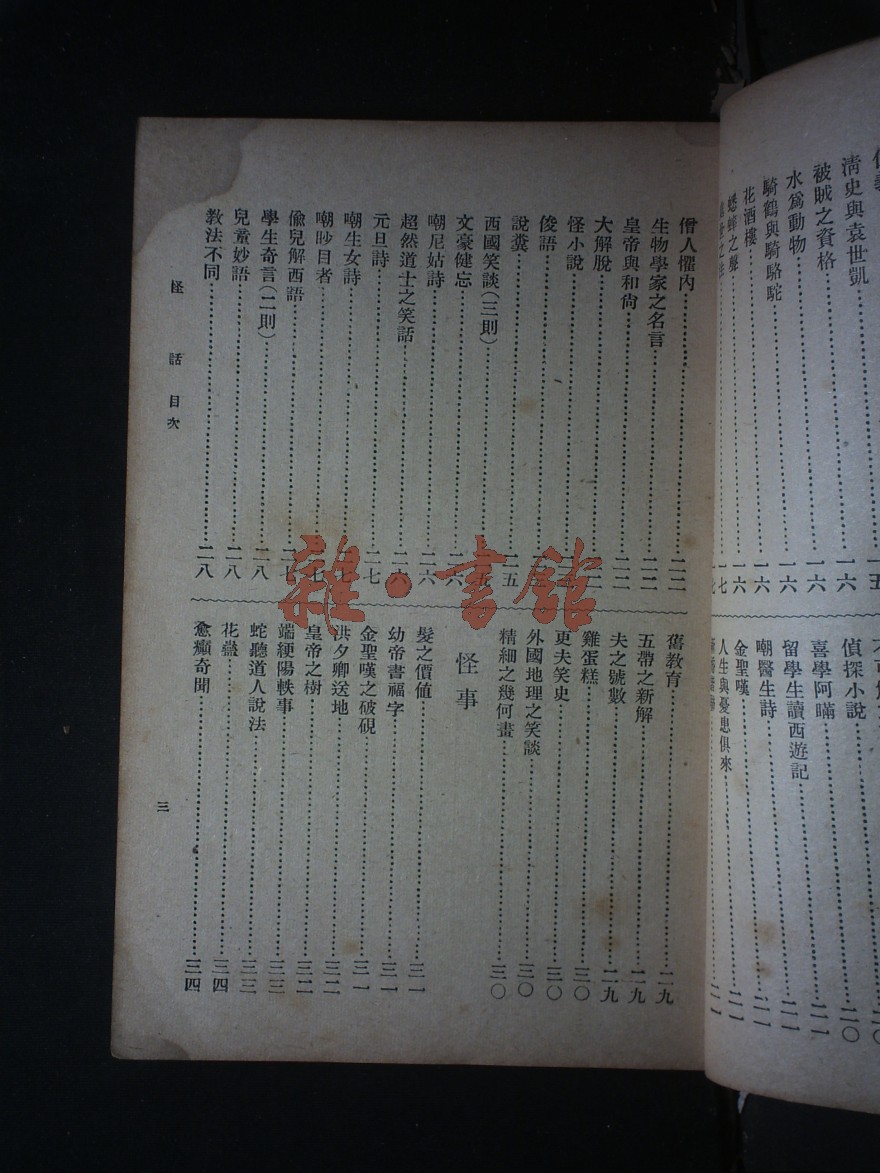 清史與袁世凱……一五
被賊之資格……一六
水爲動物……一六
騎鶴與騎駱駝……一六
花酒樓……一六
蟋蟀之聲……一七
偵探小說……二〇
喜學阿瞞……二一
留學生讀西遊記……二一
嘲醫生詩……二一
金聖嘆……二一
人生與憂患俱來
僧人懼內……二二
生物學家之名言……二二
皇帝與和尙……二二
大解脫
怪小說
俊語
說糞……二五
西國笑談(三則)
文豪健忘……二六
嘲尼姑詩……二六
超然道士之笑話……二六
元旦詩……二七
嘲生女詩
嘲眇目者
儉兒解西語……二七
學生奇言(二則)……二八
兒童妙語……二八
教法不同……二八
舊教育……二九
五帶之新解……二九
夫之號數……二九
雞蛋糕……三〇
更夫笑史……三〇
外國地理之笑談……三〇
精細之幾何畫……三〇
怪事
髮之價値……三一
幼帝書福字……三一
金聖嘆之破硯……三一
洪夕卿送地……三二
皇帝之樹……三二
端綆陽軼事……三三
蛇聽道人說法……三三
花蠱……三四
愈癲奇聞……三四
怪話目次
三
雜·書館